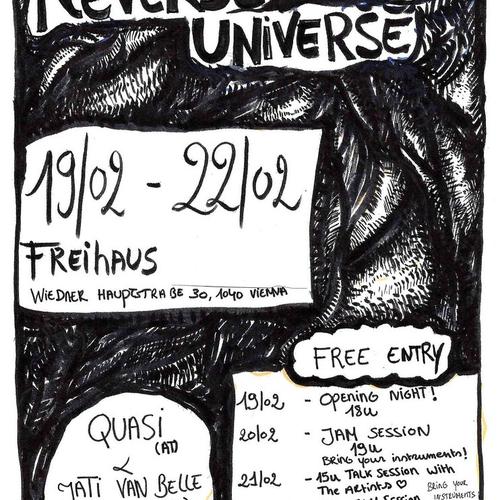 UNIVERSE!
19/02 - 22/02
FREIHAUS
WIEDNER HAUPTSTRAßE 30, 1040 VIENNA
FREE ENTRY
19/02 - OPENING NIGHT!
18u
20/02 - JAM SESSION
19u
Bring your instruments!
21/02 - 15u TALK SESSION with
The Artists ♡
BRING YOUR
INSTRUMENTS
Session
QUASI
(AT)
&
MATI VAN BELLE